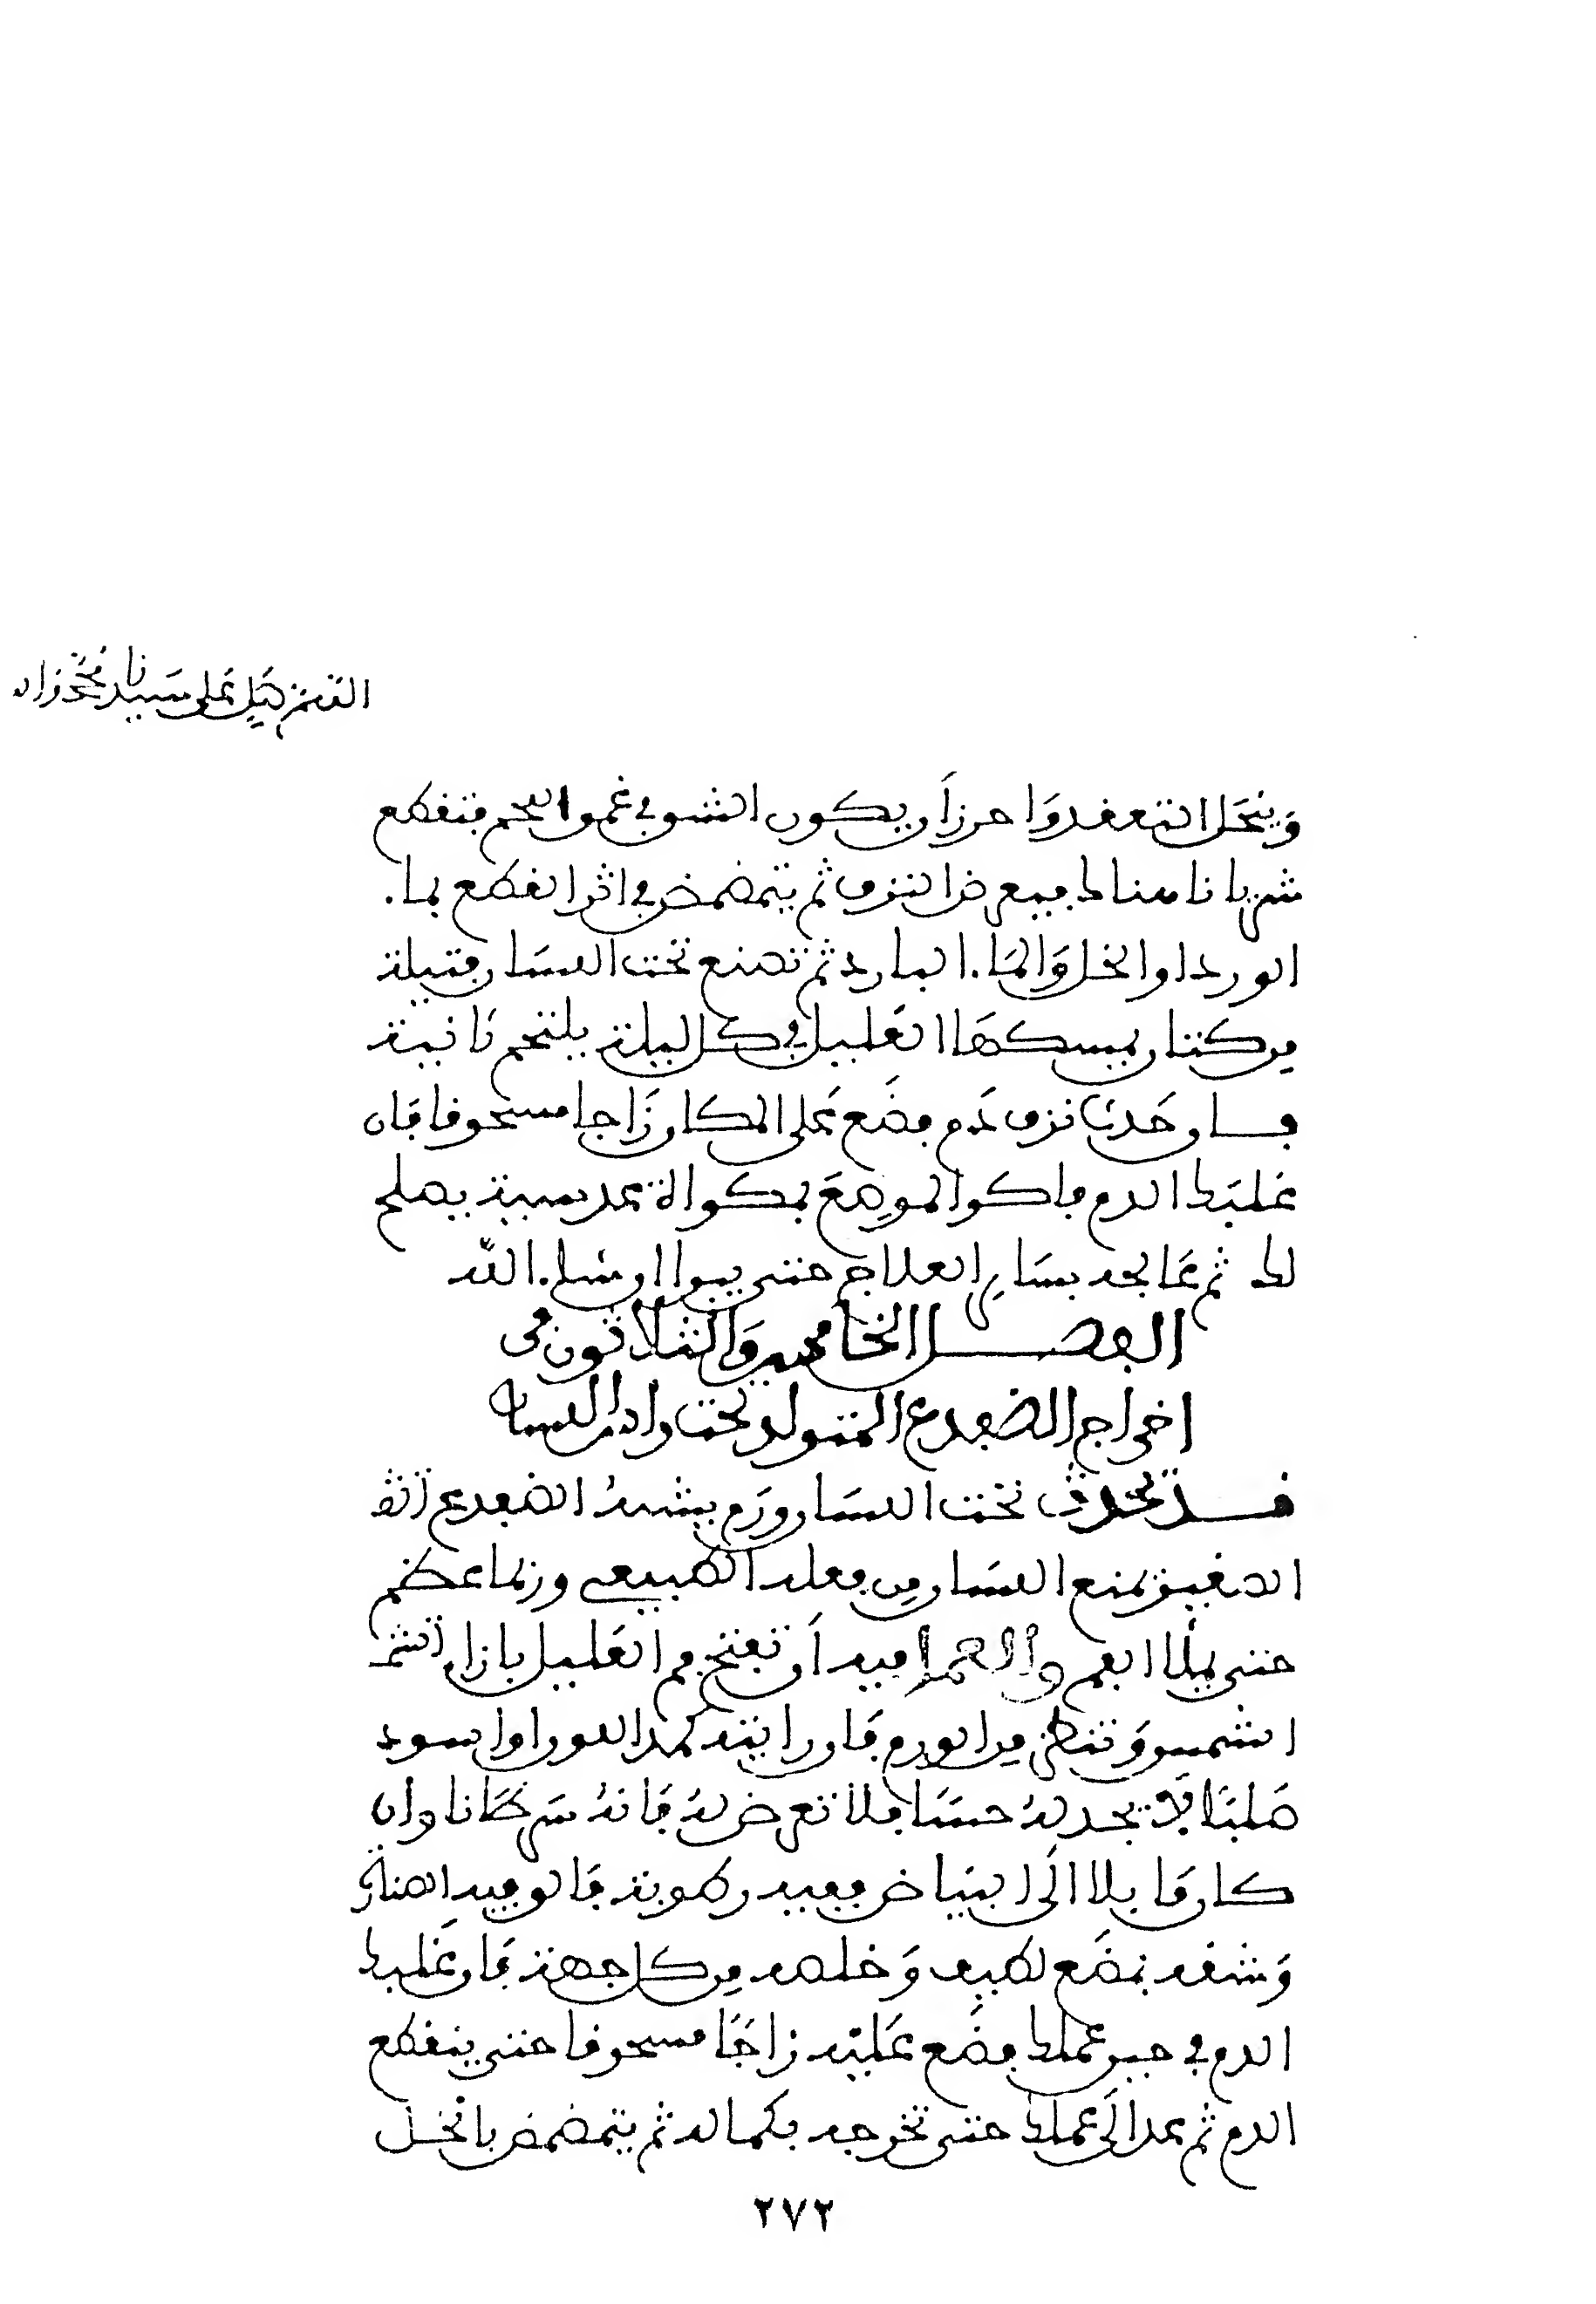 اللهم صل على سيدنا محمد واله
وينحل التعقد واحذر أن يكون الشق في عمق اللحم فتقطع
شريانا هنالك فيعرض النزف ثم يتمضمض في اثر القطع بماء
الورد او الخل والماء البارد ثم تضع تحت اللسان فتيلة
من كتان يمسكها العليل في كل ليلة يلتحم ثانية
فإن حدث نزف دم فضع على المكان زاجا مسحوقا فان
غلبك الدم فاكو الموضع بمكواة عدسية يصلح
لك ثم عالجه بسائر العلاج حتى يبرا ان شاء الله
الفصل الخامس والثلاثون في
اخراج الضفدع المتولد تحت اللسان
قد تحدث تحت اللسان ورم يشبه الضفدع
الصغير يمنع اللسان من فعله الطبيعي وربما عظم
حتى يملا الفم والعمل فيه أن تفتح فم العليل بازاء
الشمس وتنظر من الورم فان رايته كمد اللون او اسود
صلبا لا تجد له حسا فلا تعرض له فانه سرطانا وان
كان مايلا الى البياض ففيه رطوبة فالق فيه الصنارة
وشقه بمبضع لطيف وخلصه من كل جهة فان غلبك
الدم في حين عملك فضع عليه زاجا مسحوقا حتى ينقطع
الدم ثم عد الى عملك حتى تخرجه بكماله ثم يتمضمض بالخل
٢٧٢